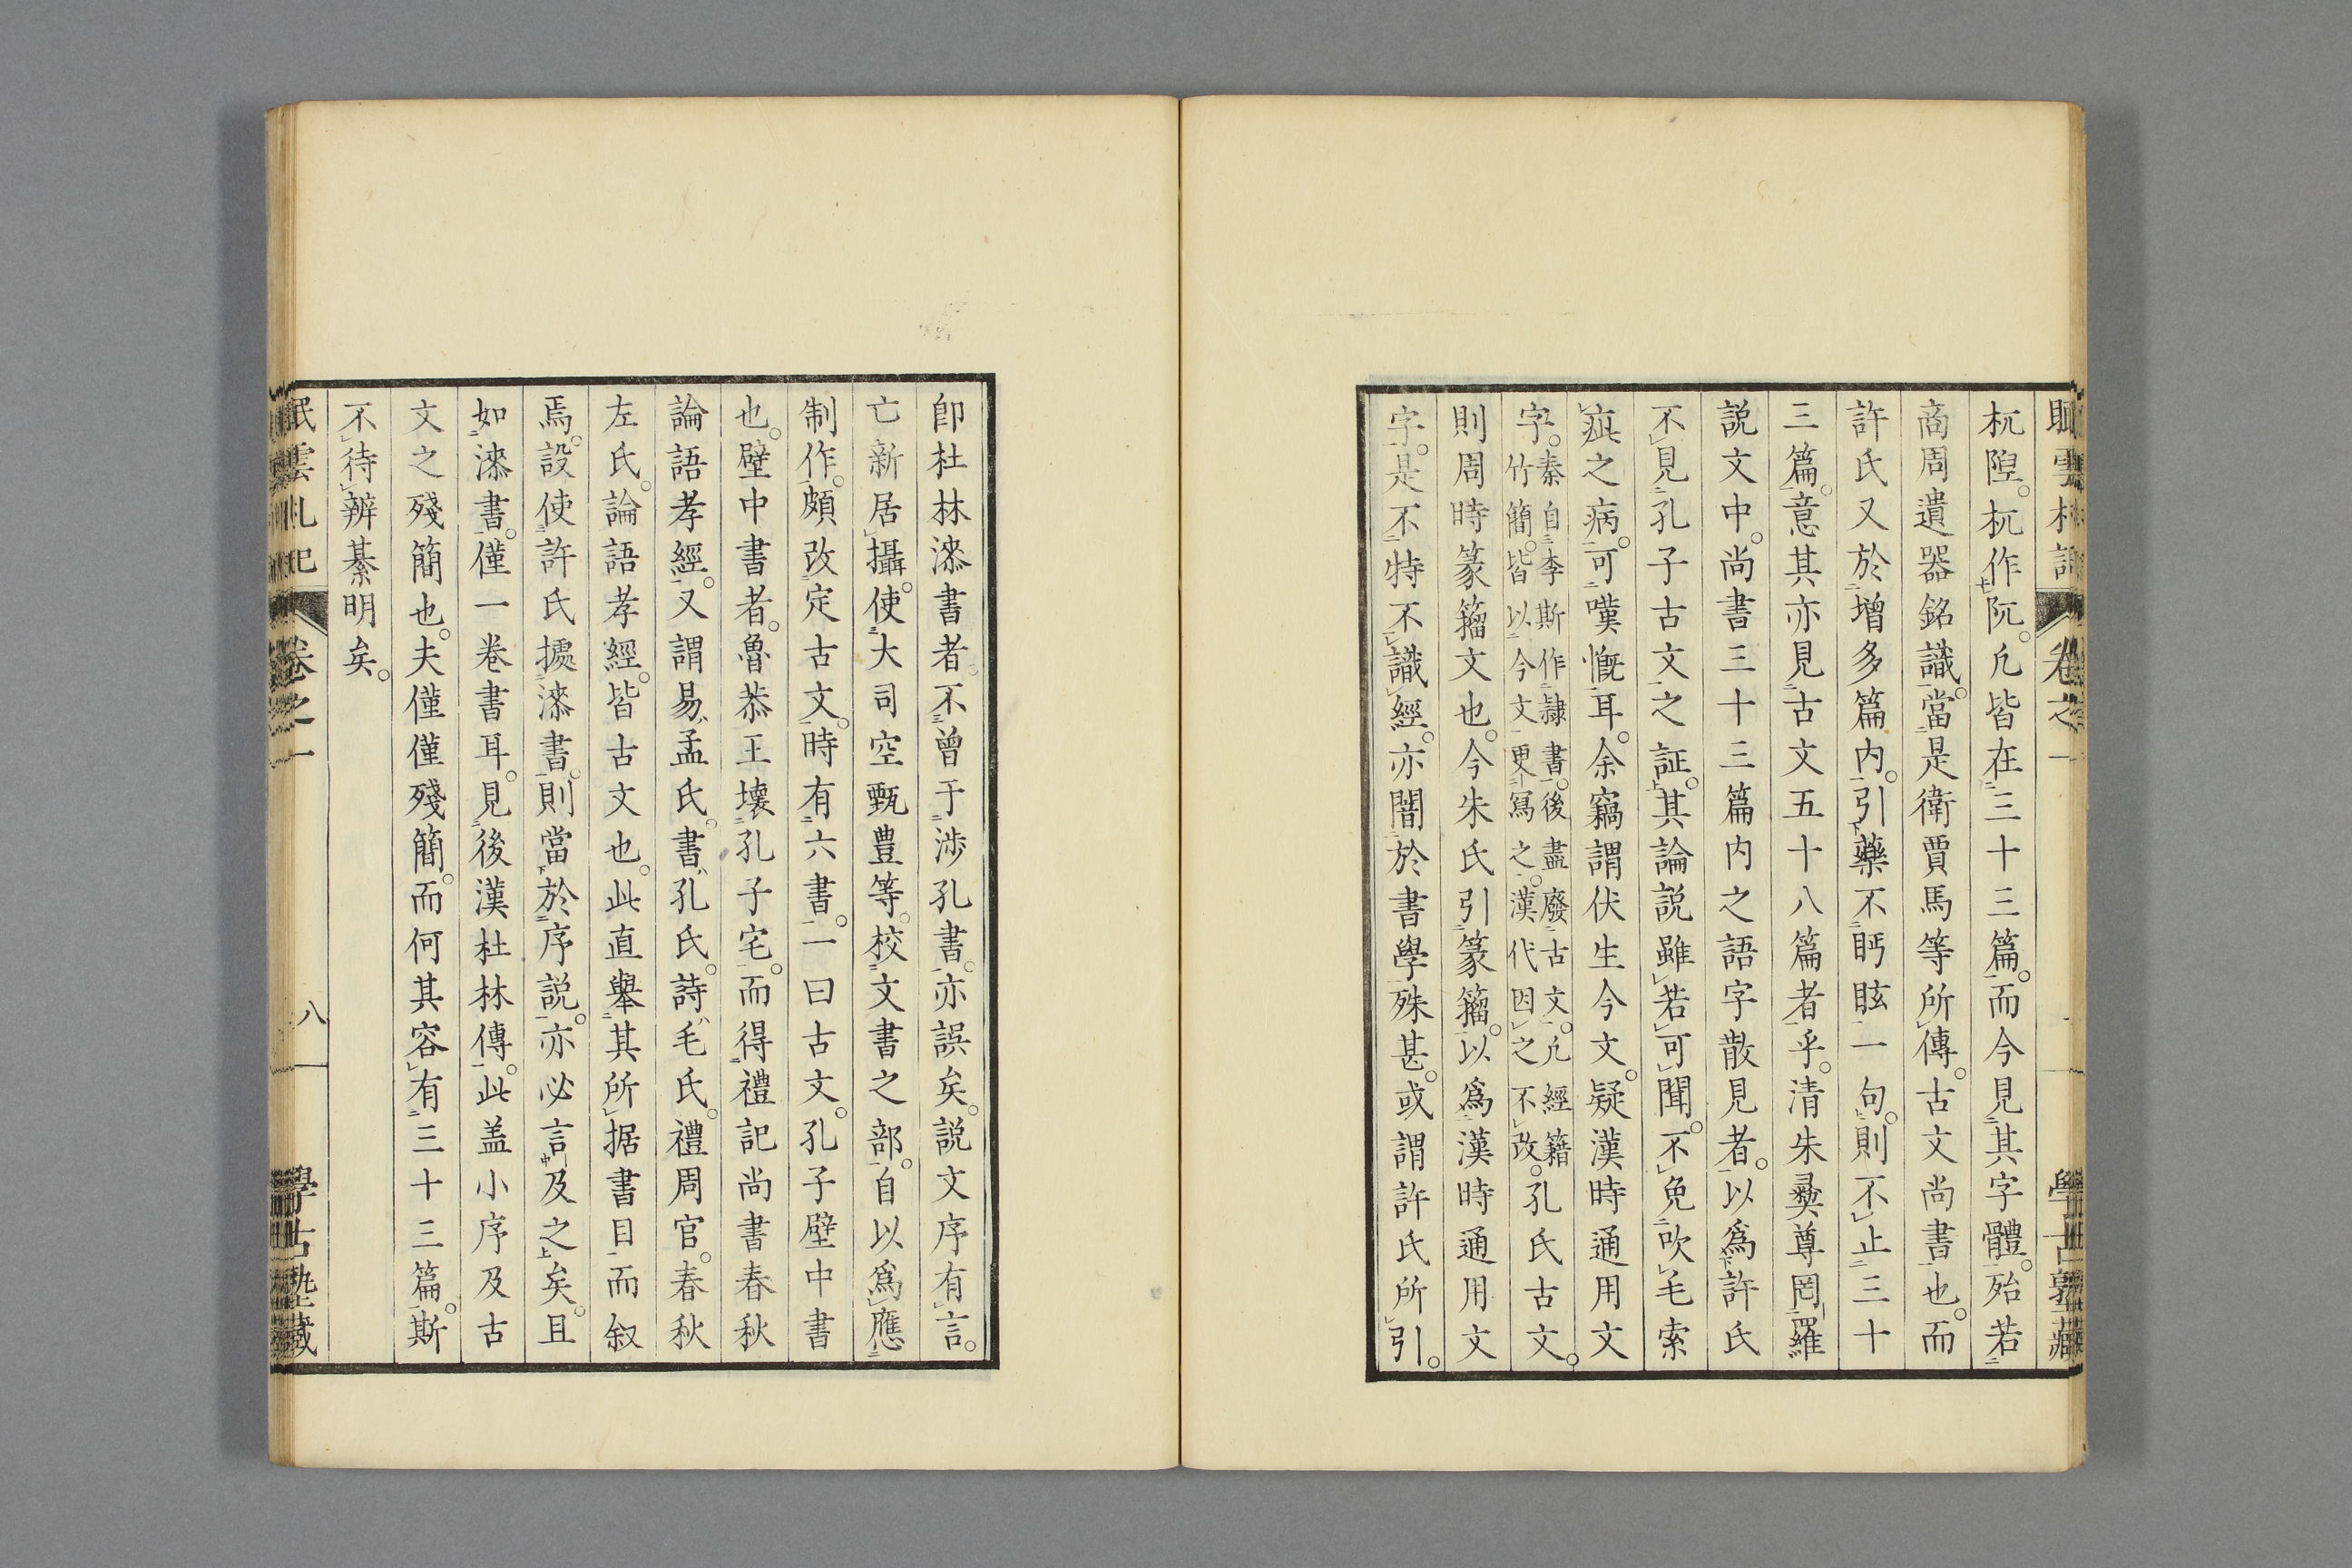 眠雲札記 卷之一 學古塾藏
杌隉。杌作阢。凢皆在三十三篇。而今見其字體。殆若
商周遺器銘識。當是衛賈馬等所傳。古文尚書也。而
許氏又於増多篇内。引藥不眄眩一句。則不止三十
三篇。意其亦見古文五十八篇者乎。清朱彛尊罔羅
説文中。尚書三十三篇内之語字散見者。以爲許氏
不見孔子古文之証。其論説雖若可聞。不免吹毛索
疵之病。可嘆慨耳。余竊謂伏生今文。疑漢時通用文
字。秦自李斯作隷書。後盡廢古文。凢經籍竹簡。皆以今文更寫之。漢代因之不改。孔氏古文。
則周時篆籀文也。今朱氏引篆籀。以爲漢時通用文
字。是不特不識經。亦闇於書學殊甚。或謂許氏所引。
卽杜林漆書者。不曾于渉孔書。亦誤矣。説文序有言。
亡新居攝。使大司空甄豊等。校文書之部。自以爲應
制作。頗改定古文。時有六書。一曰古文。孔子壁中書
也。壁中書者。魯恭王壊孔子宅。而得禮記尚書春秋
論語孝經。又謂易孟氏。書孔氏。詩毛氏。禮周官。春秋
左氏。論語孝經。皆古文也。此直舉其所据書目而叙
焉。設使許氏據漆書。則當於序説。亦必言及之矣。且
如漆書。僅一巻書耳。見後漢杜林傳。此盖小序及古
文之殘簡也。夫僅僅殘簡。而何其容有三十三篇。斯
不待辨綦明矣。
眠雲札記 卷之一 八 學古塾藏